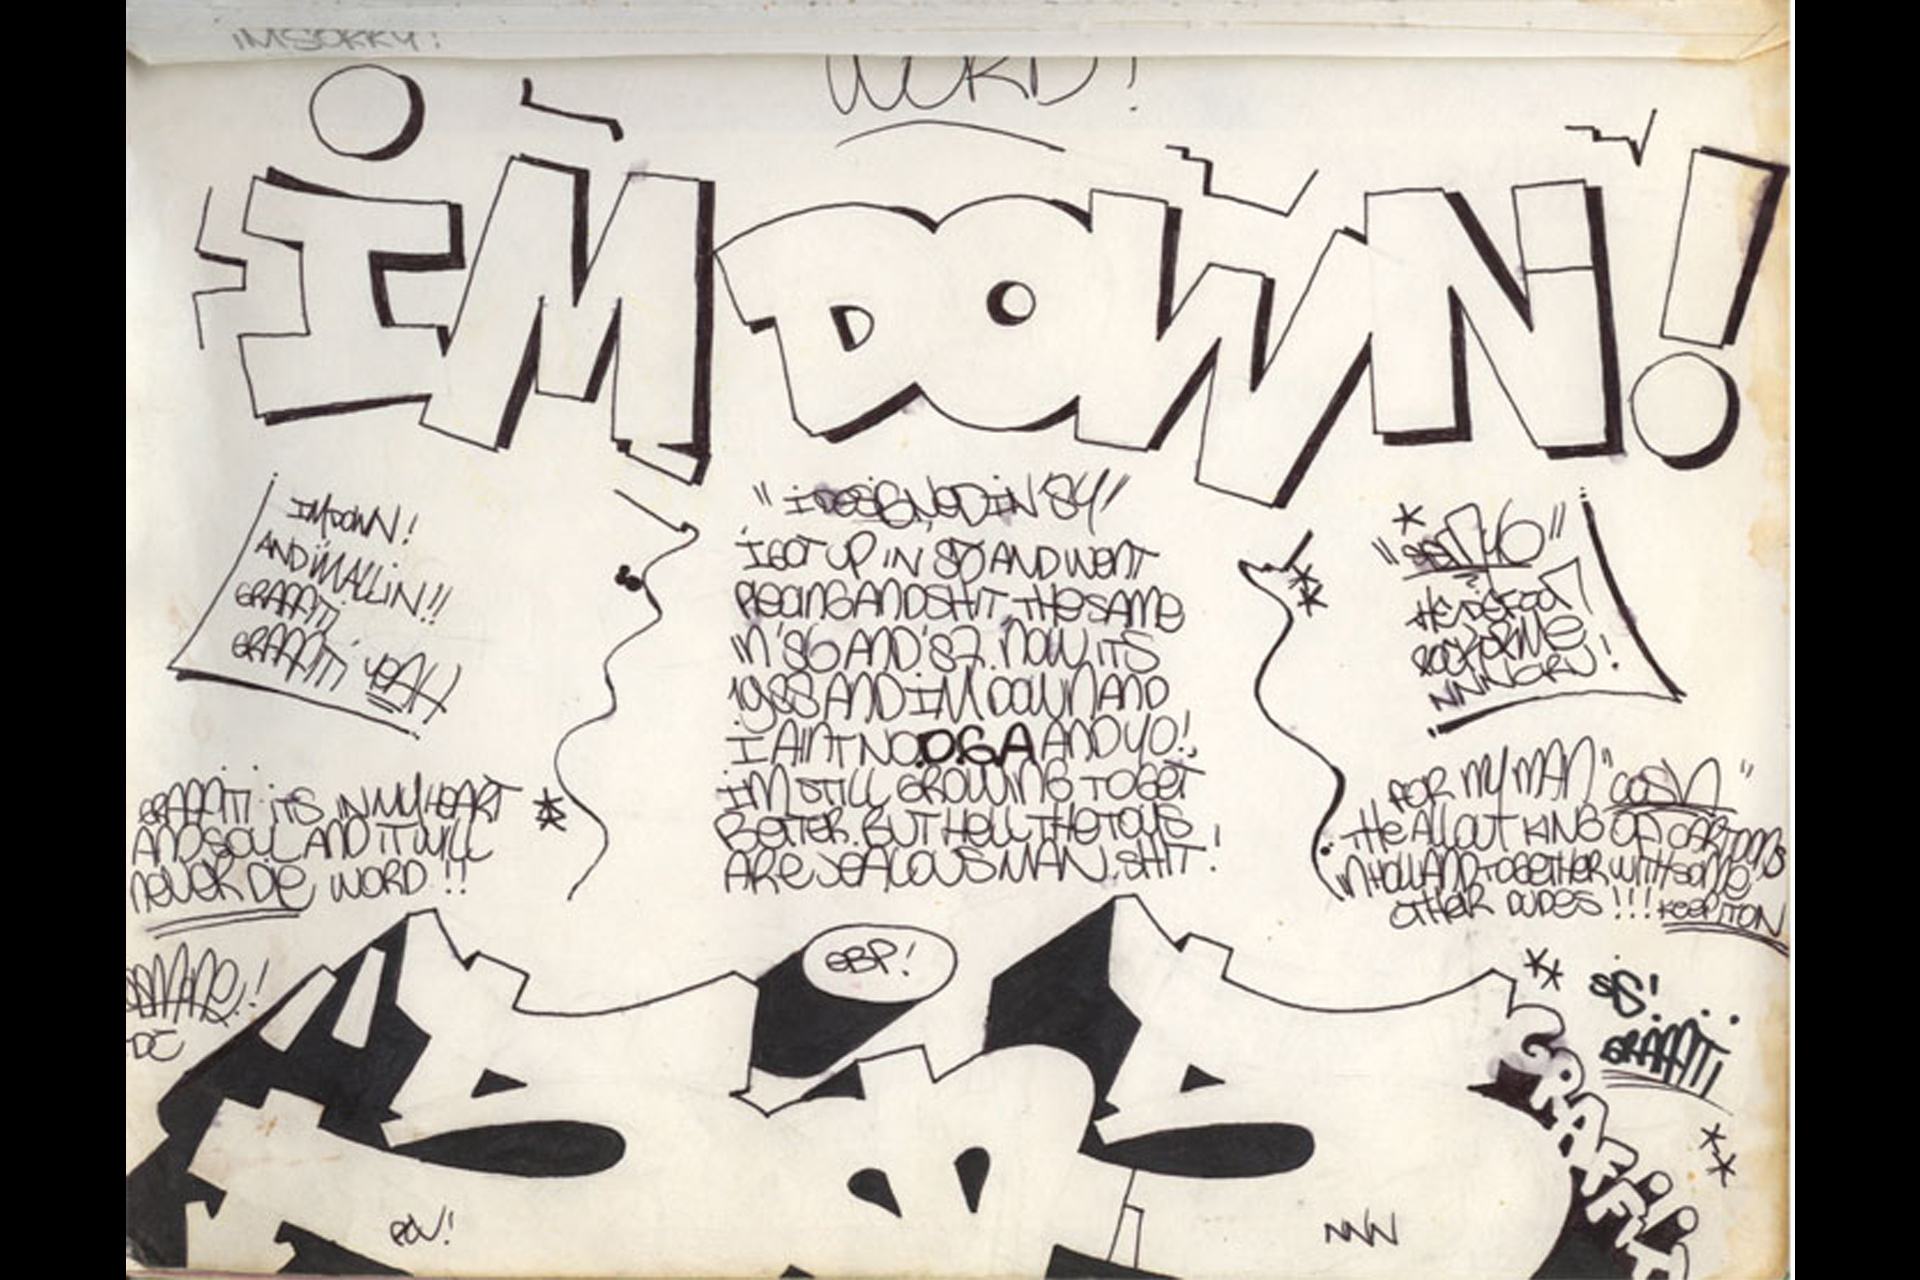 IM SORRY!
WORD!
IM DOWN!
IM DOWN!
AND IM ALL IN!!
GRAFFITI
GRAFFITI YEAH
"I DESIGNED IN '84"
I GOT UP IN 85 AND WENT
PIECING AND SHIT. THE SAME
IN '86 AND '87. NOW ITS
1988 AND IM DOWN AND
I AINT NO O.G.A AND YO!
IM STILL GROWING TO GET
BETTER. BUT HELL THE TOYS
ARE JEALOUS MAN. SHIT!
HE DEF
ROCK
GRAFFITI ITS IN MY HEART
AND SOUL AND IT WILL
NEVER DIE WORD!!
FOR MY MAN
THE ALL OUT KING OF CARTOONS
IN HOLLAND TOGETHER WITH SOME
OTHER DUDES!!! KEEP IT ON
GBP!
SS!
GRAFFITI
GRAFFITI
NNN